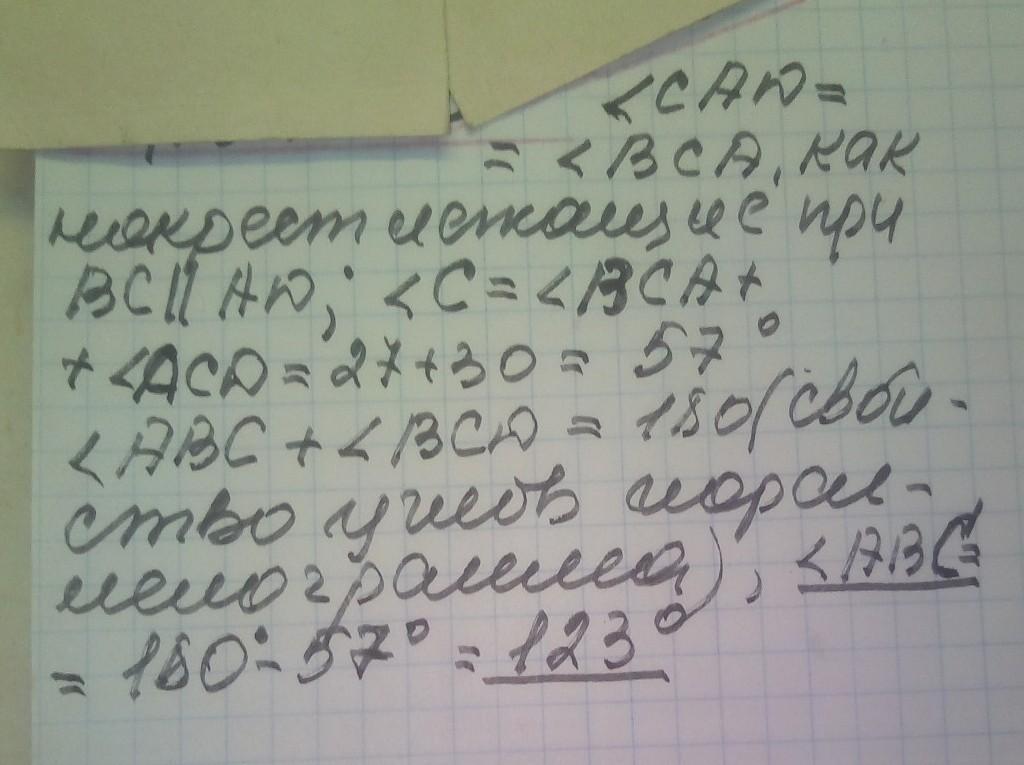 ∠CAD =
= ∠BCA, как
накрест лежащие при
BC || AD; ∠C = ∠BCA +
+ ∠ACD = 27 + 30 = 57°
∠ABC + ∠BCD = 180 (свой-
ство углов парал-
лелограмма), ∠ABC =
= 180° - 57° = 123°